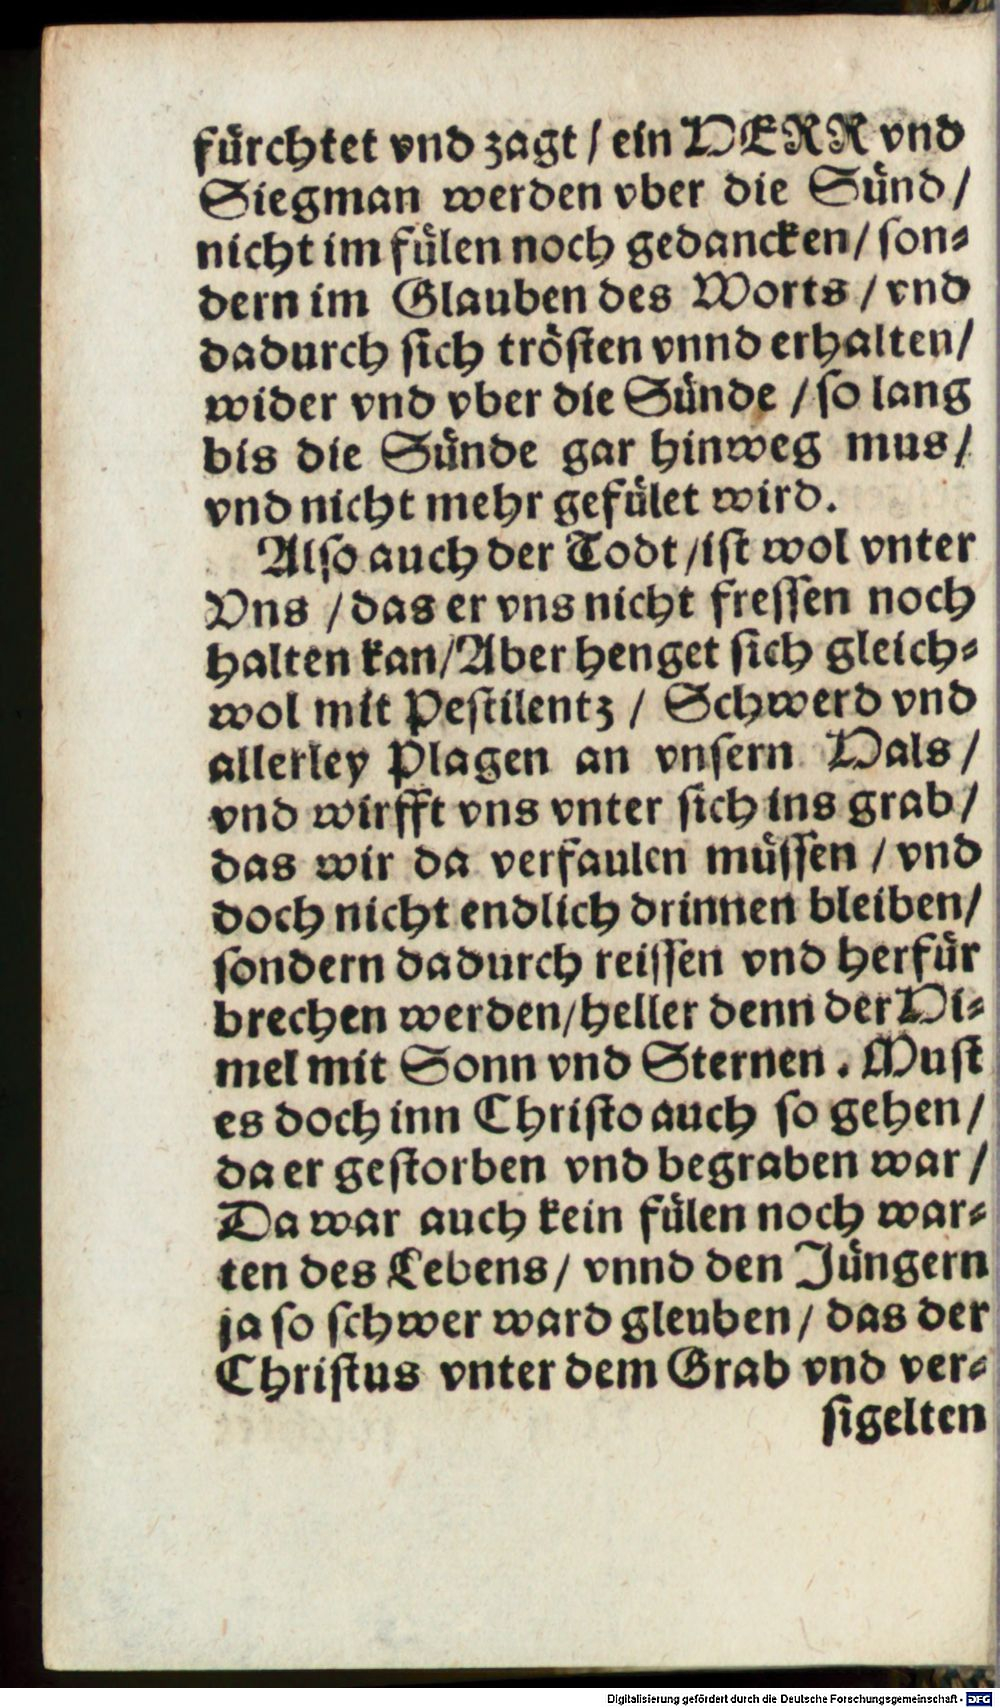 fürchtet vnd zagt / ein HERR vnd
Siegman werden vber die Sünd /
nicht im fülen noch gedancken / son⸗
dern im Glauben des Worts / vnd
dadurch sich trösten vnnd erhalten /
wider vnd vber die Sünde / so lang
bis die Sünde gar hinweg mus /
vnd nicht mehr gefület wird.
Also auch der Todt / ist wol vnter
Vns / das er vns nicht fressen noch
halten kan / Aber henget sich gleich⸗
wol mit Pestilentz / Schwerd vnd
allerley Plagen an vnsern Hals /
vnd wirfft vns vnter sich ins grab /
das wir da verfaulen müssen / vnd
doch nicht endlich drinnen bleiben /
sondern dadurch reissen vnd herfür
brechen werden / heller denn der Hi⸗
mel mit Sonn vnd Sternen. Must
es doch inn Christo auch so gehen /
da er gestorben vnd begraben war /
Da war auch kein fülen noch war⸗
ten des Lebens / vnnd den Jüngern
ja so schwer ward gleuben / das der
Christus vnter dem Grab vnd ver⸗
sigelten
Digitalisierung gefördert durch die Deutsche Forschungsgemeinschaft - DFG